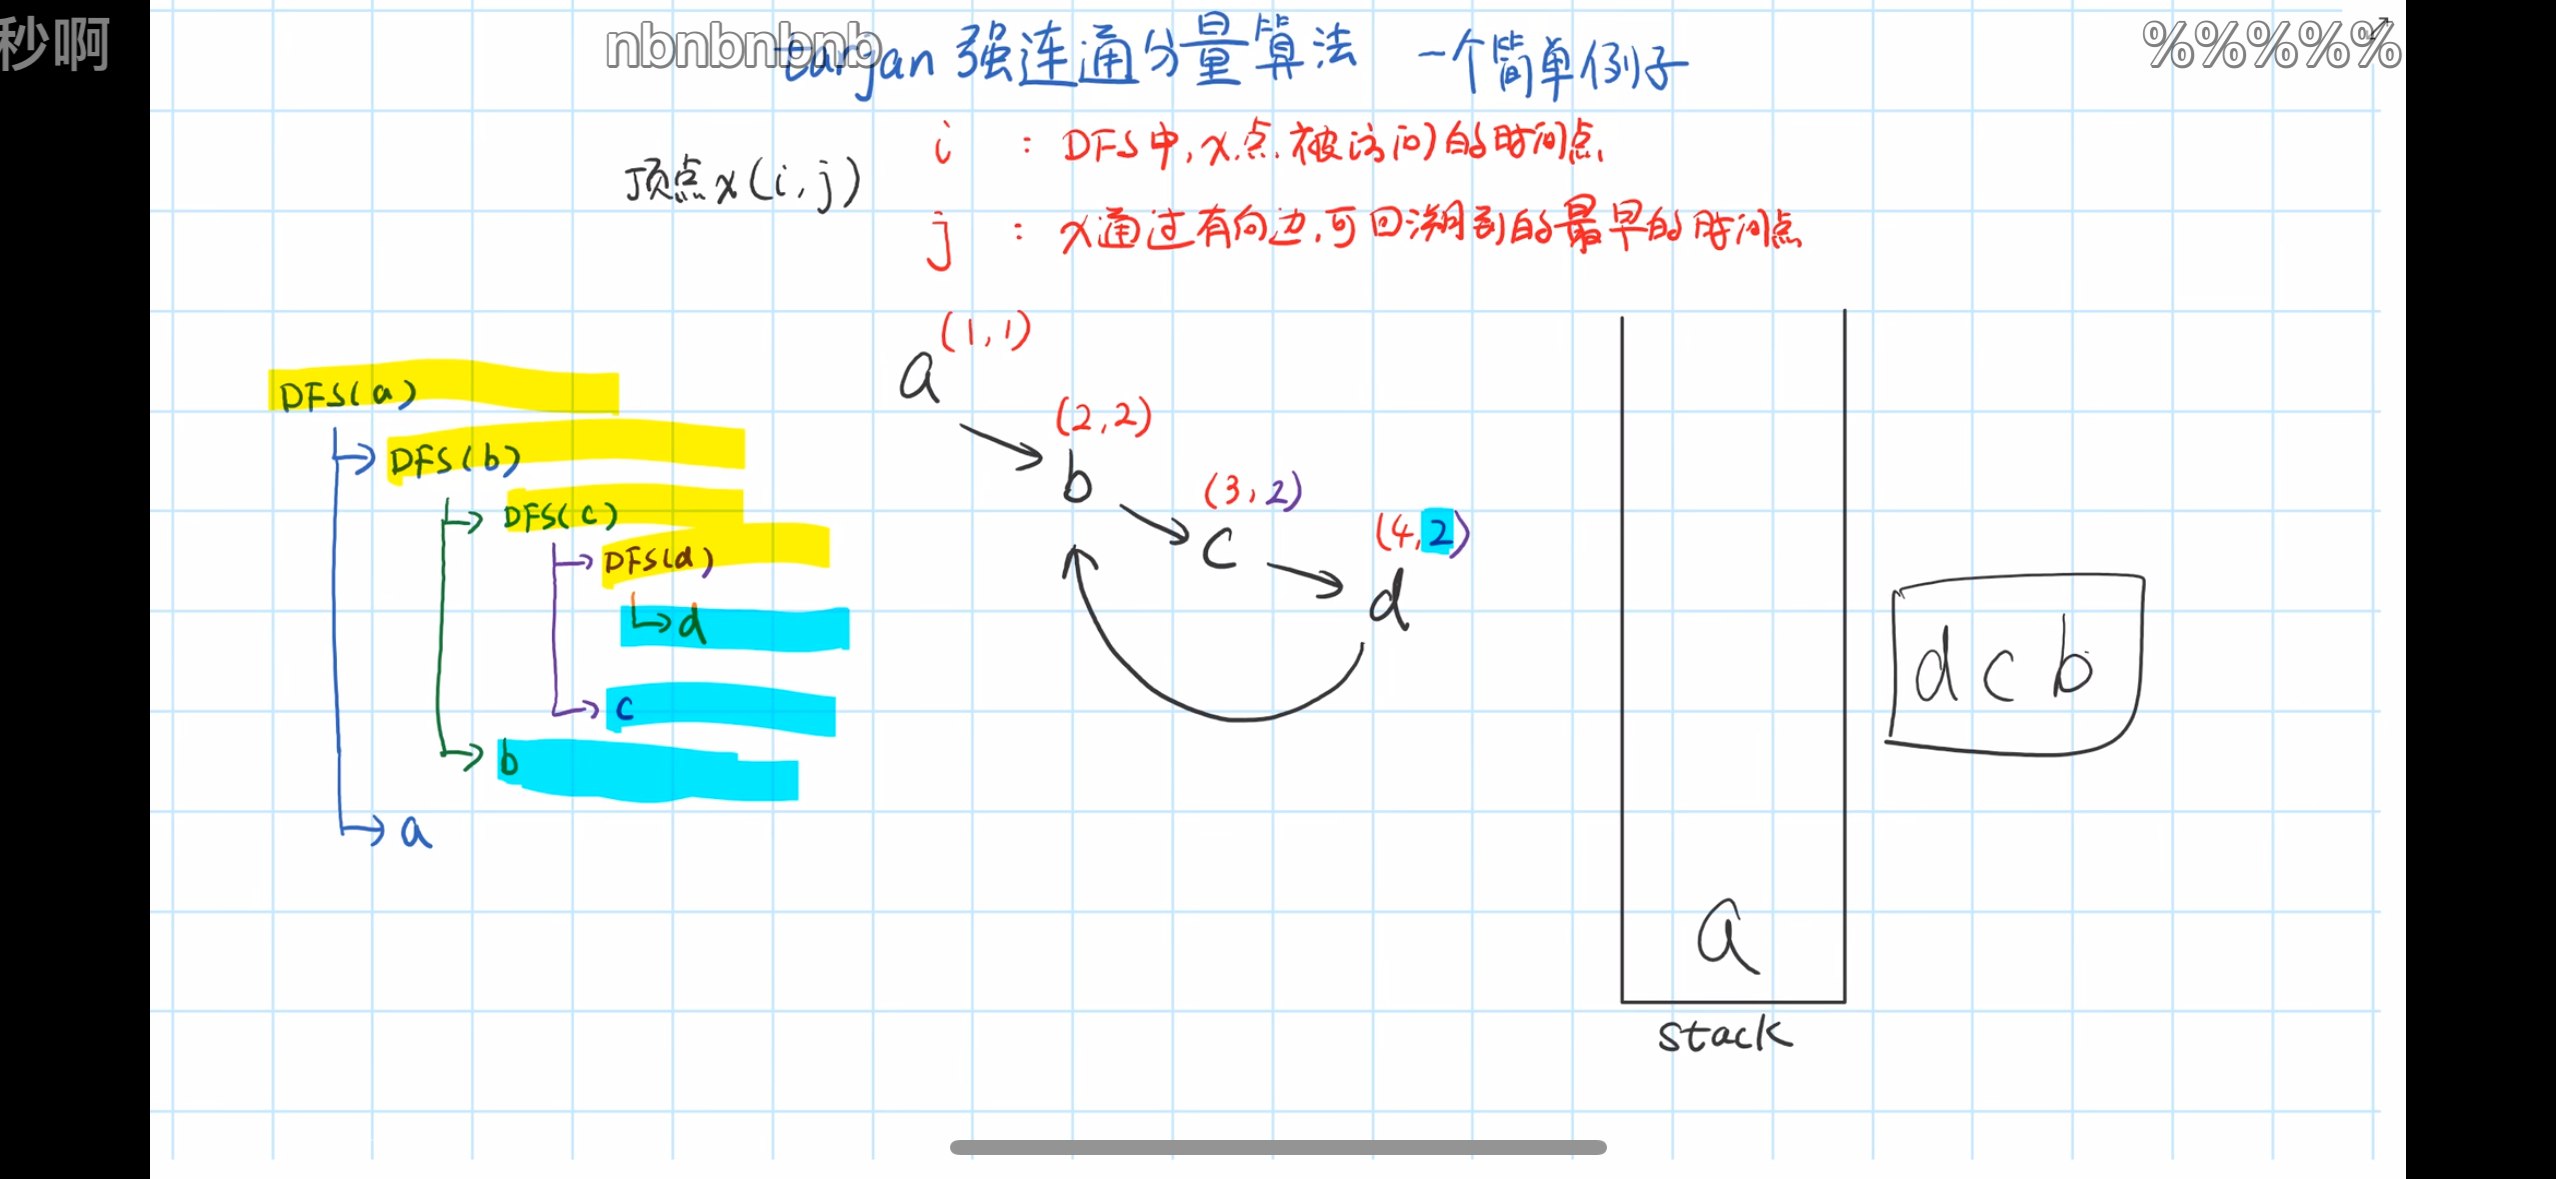 秒啊
nbnbnbnb
%%%%%
tarjan 强连通分量算法 一个简单例子
顶点x(i,j)
i : DFS中,x点被访问的时间点
j : x通过有向边,可回溯到的最早的时间点
DFS(a)
DFS(b)
DFS(c)
DFS(d)
d
c
b
a
(1,1)
a
(2,2)
b
(3,2)
c
(4,2)
d
a
stack
d c b